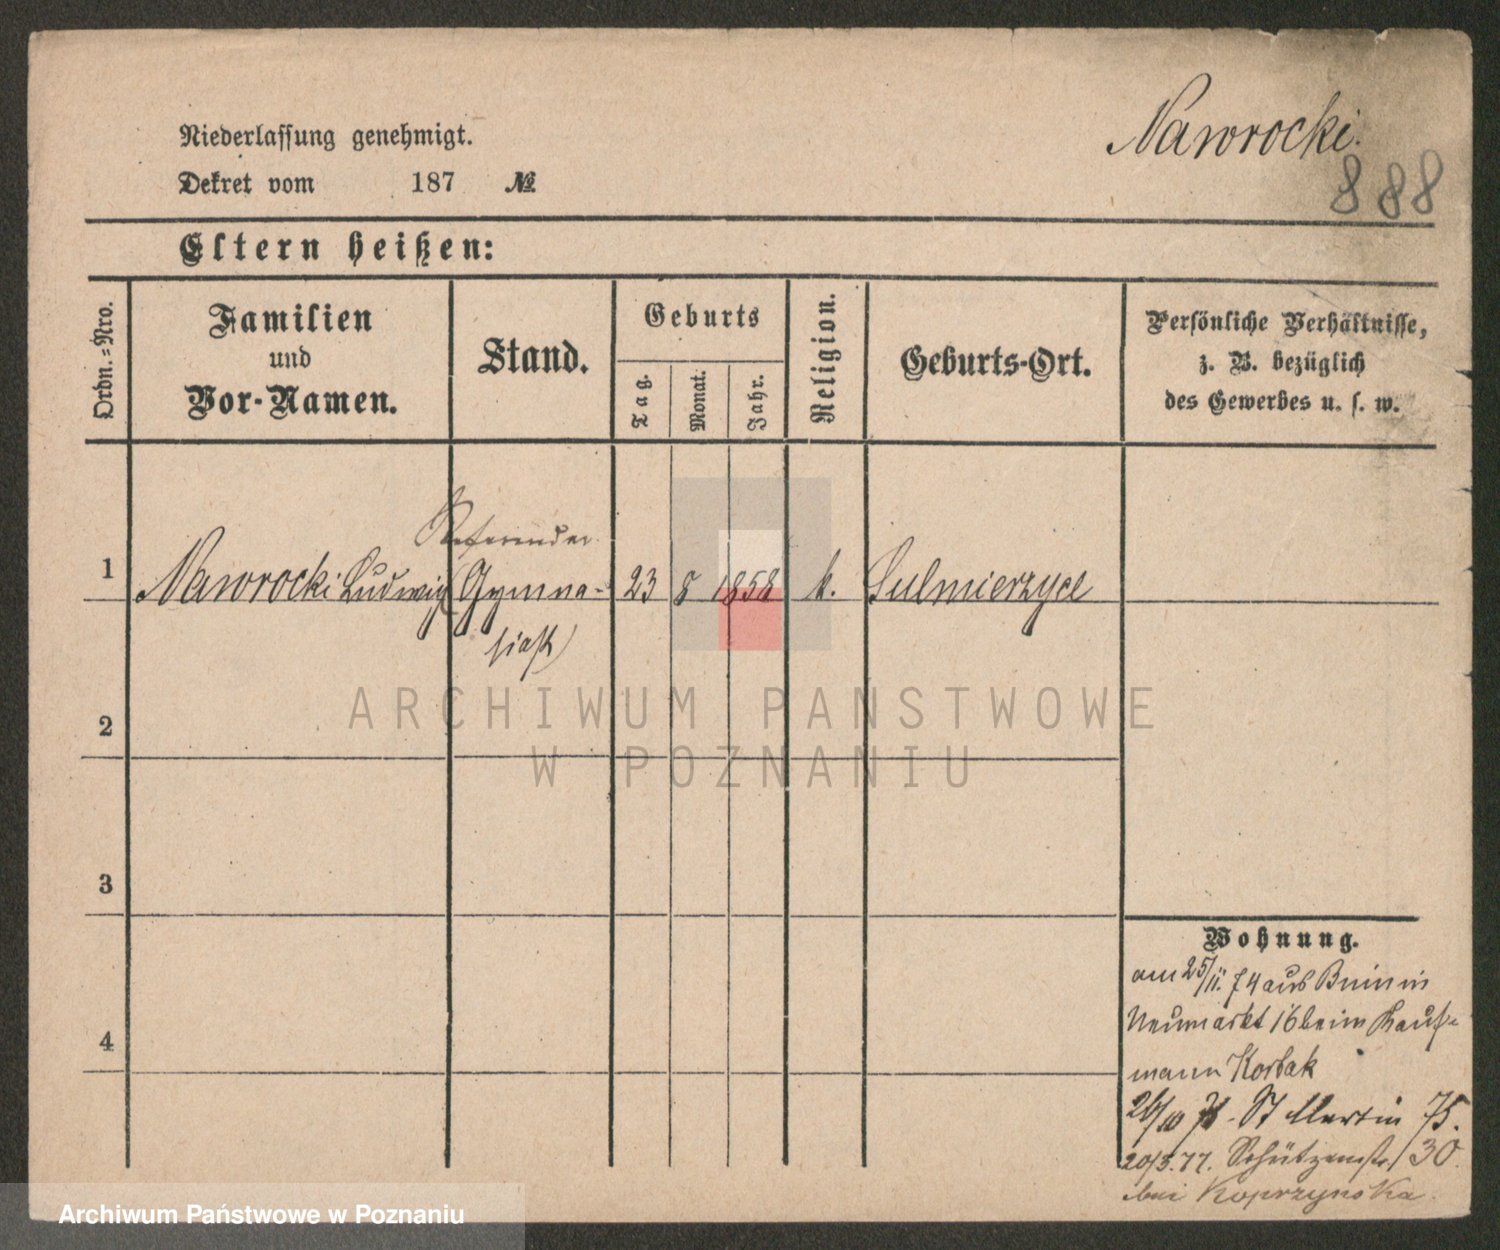 Nawrocki.
888
Niederlassung genehmigt.
Dekret vom 187 №
Eltern heißen:
Ordn.=Nro.
Familien
und
Vor-Namen.
Stand.
Geburts
Tag.
Monat.
Jahr.
Religion.
Geburts-Ort.
Persönliche Verhältnisse,
z. B. bezüglich
des Gewerbes u. s. w.
Referendar
1 Nawrocki Ludwig (Gymna- 23 8 1858 k. Sulmierzyce
siast)
ARCHIWUM PAŃSTWOWE
W POZNANIU
2
3
4
Wohnung.
am 25/11. 74 aus Bnin in
Neumarkt 16 beim Kauf-
mann Kortak
26/10 St Martin 75.
20/3.77. Schützenstr. 30.
bei Koprzynska
Archiwum Państwowe w Poznaniu